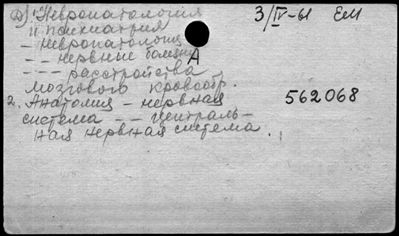 1. Невропатология
и психиатрия
- Невропатология
- - нервные болезни
- - - расстройства
мозгового кровообр.
2. Анатомия - нервная
система - - централь-
ная нервная система.
3/IV-61 ЕМ
А
562068